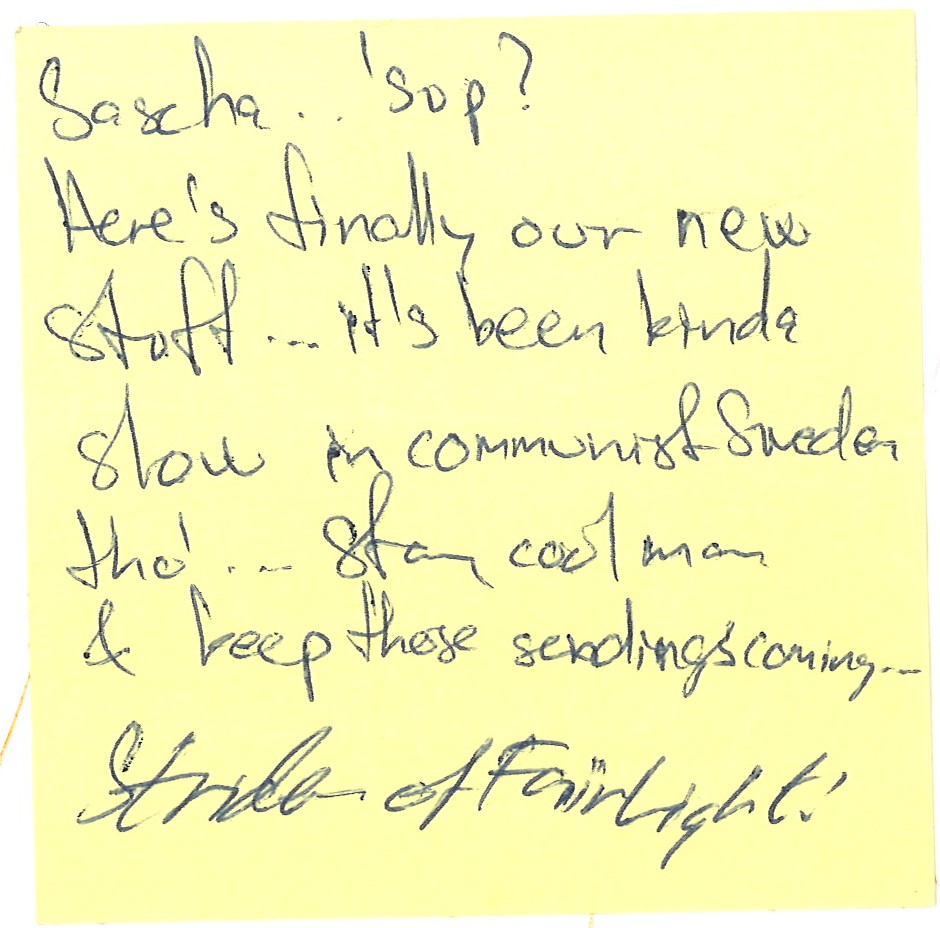 Sascha... 'sup?
Here's finally our new
stuff... it's been kinda
slow in communist Sweden
tho'... stay cool man
& keep those sendings coming...
Strider of Fairlight!